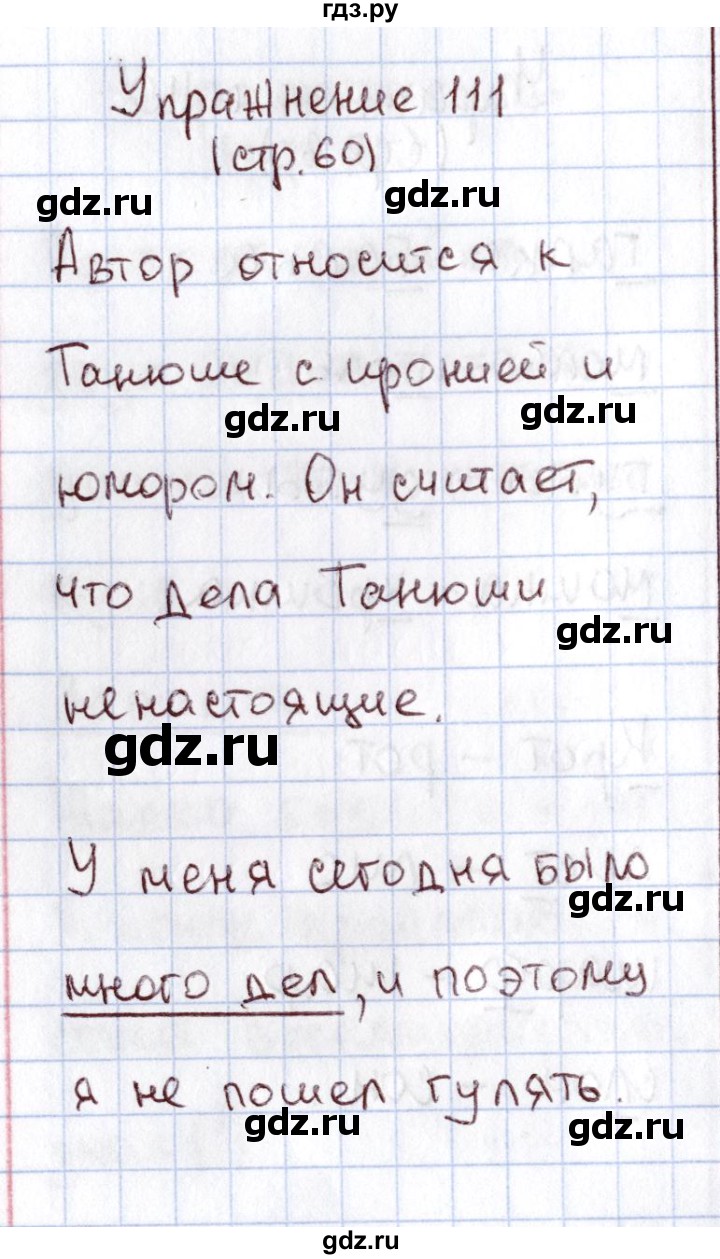 гдз.ру
Упражнение 111
(стр.60)
gdz.ru gdz.ru
Автор относится к
Танюше с иронией и
gdz.ru gdz.ru
юмором. Он считает,
что дела Танюши
gdz.ru
ненастоящие.
gdz.ru
У меня сегодня было
gdz.ru
много дел, и поэтому
я не пошел гулять.
gdz.ru gdz.ru
гдз.ру